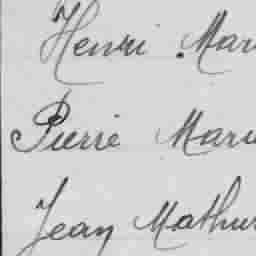 Henri Mari
Pierre Marie
Jean Mathur